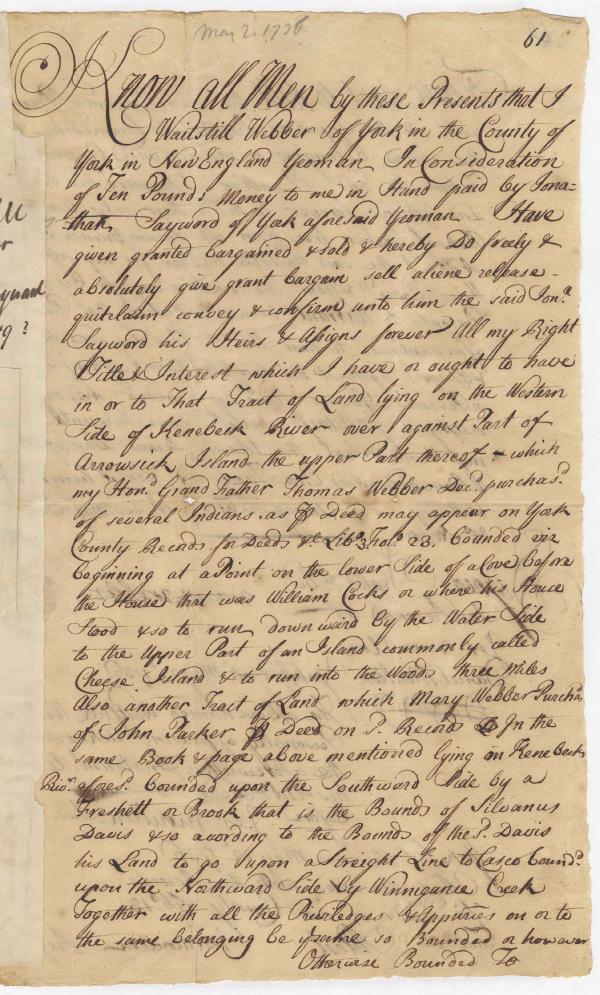 May 2. 1736
61
Know all Men by these Presents that I
Waitstill Webber of York in the County of
York in New England Yeoman In Consideration
of Ten Pounds Money to me in Hand paid by Jona-
than Sayword of York aforesaid Yeoman Have
given granted bargained & sold & hereby Do freely &
absolutely give grant bargain sell aliene release -
quitclaim convey & confirm unto him the said Jonn.
Sayword his Heirs & Assigns forever All my Right
Title & Interest which I have or ought to have
in or to That Tract of Land lying on the Western
Side of Kenebeck River over against Part of
Arrowsick Island the upper Part thereof & which
my Hond. Grand Father Thomas Webber Decd. purchasd.
of several Indians as ⅌ Deed may appear on York
County Records for Deeds &c Libo. 3 Folo. 23. bounded viz
beginning at a Point on the lower Side of a Cove before
the House that was William Cocks or where his House
Stood & so to run downward by the Water Side
to the Upper Part of an Island commonly called
Cheese Island & to run into the Woods three Miles
Also another Tract of Land which Mary Webber Purchasd
of John Parker ⅌ Deed on sd. Record In the
same Book & page above mentioned lying in Kenebeck
River aforesd. bounded upon the Southward Side by a
Freshett or Brook that is the Bounds of Silvanus
Davis & so acording to the Bounds of the sd. Davis
his Land to go upon a Streight Line to Casco bound.
upon the Northward Side by Winnigance Creek
Together with all the Priviledges & Appurces on or to
the same belonging be ye same so Bounded or however
Otherwise Bounded To